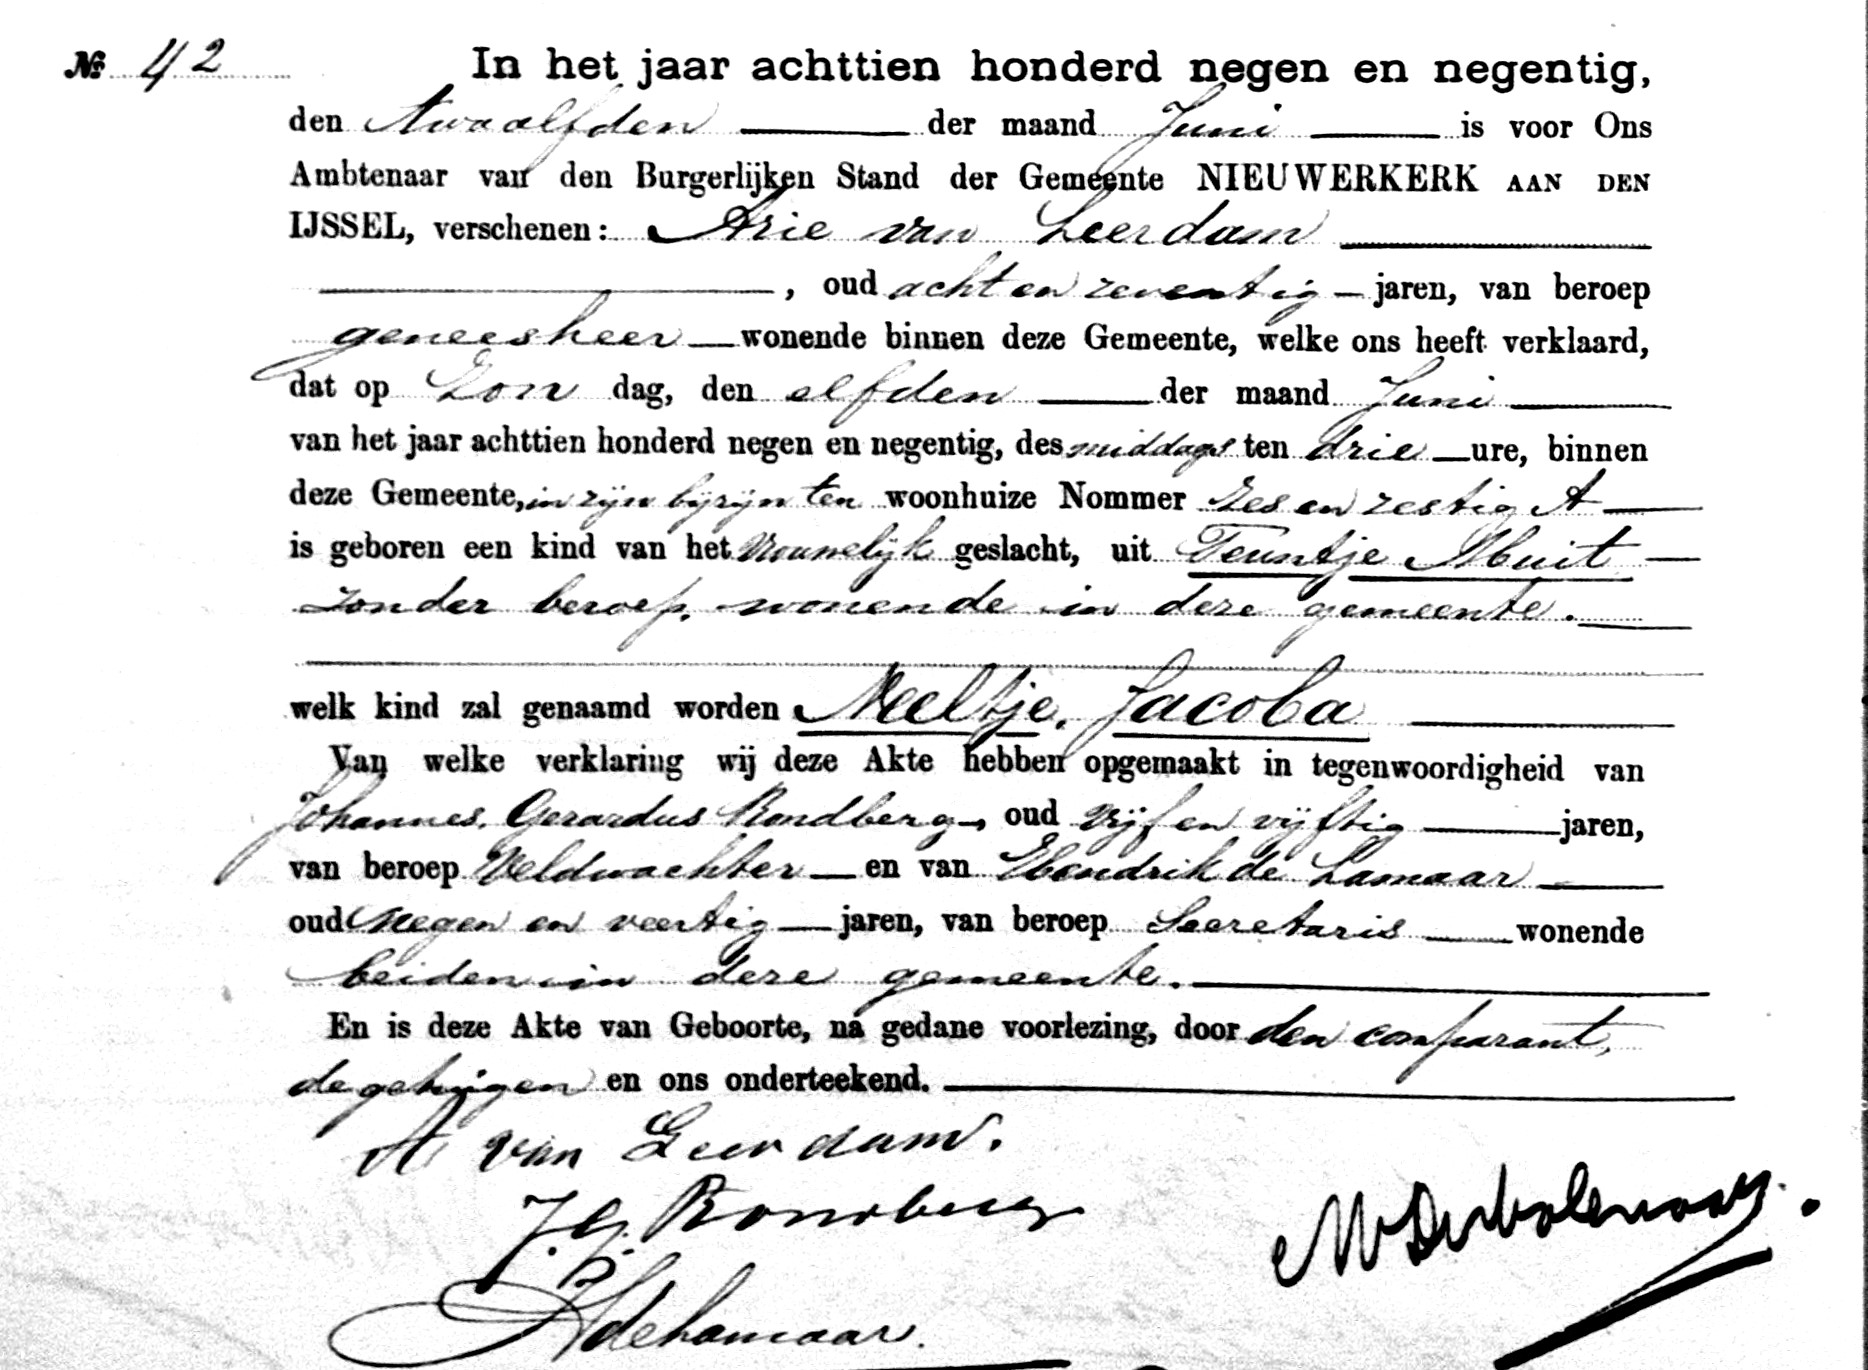 № 42 In het jaar achttien honderd negen en negentig,
den twaalfden der maand Juni is voor Ons
Ambtenaar van den Burgerlijken Stand der Gemeente NIEUWERKERK AAN DEN
IJSSEL, verschenen: Arie van Leerdam
, oud acht en zeventig jaren, van beroep
geneesheer wonende binnen deze Gemeente, welke ons heeft verklaard,
dat op Zon dag, den elfden der maand Juni
van het jaar achttien honderd negen en negentig, des middags ten drie ure, binnen
deze Gemeente, in zijn bijzijn ten woonhuize Nommer Zes en zestig A
is geboren een kind van het Vrouwelijk geslacht, uit Teuntje Muit
zonder beroep, wonende in deze gemeente.
welk kind zal genaamd worden Neeltje, Jacoba
Van welke verklaring wij deze Akte hebben opgemaakt in tegenwoordigheid van
Johannes, Gerardus Rondberg, oud Vijf en vijftig jaren,
van beroep Veldwachter en van Hendrik de Lamaar
oud Negen en veertig jaren, van beroep Secretaris wonende
beiden in deze gemeente.
En is deze Akte van Geboorte, na gedane voorlezing, door den comparant,
de getuigen en ons onderteekend.
A van Leerdam.
J. G. Rondberg
H de Lamaar.